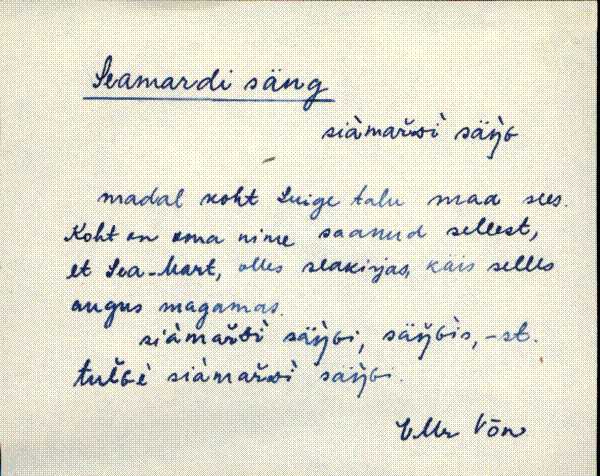 Seamardi säng
siàmařdì säŋ̀G
madal koht Luige talu maa sees.
Koht on oma nime saanud sellest,
et Sea-Mart, olles seakirjas, käis selles
augus magamas.
siàmařdì säŋ̀Gi, säŋ̀Gis, -st.
tulGè siàmařdì säŋ̀Gi.